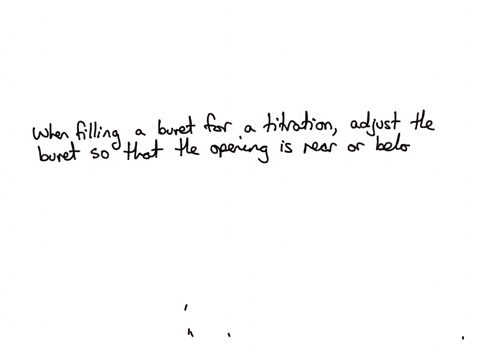 When filling a buret for a titration, adjust the
buret so that the opening is near or belo